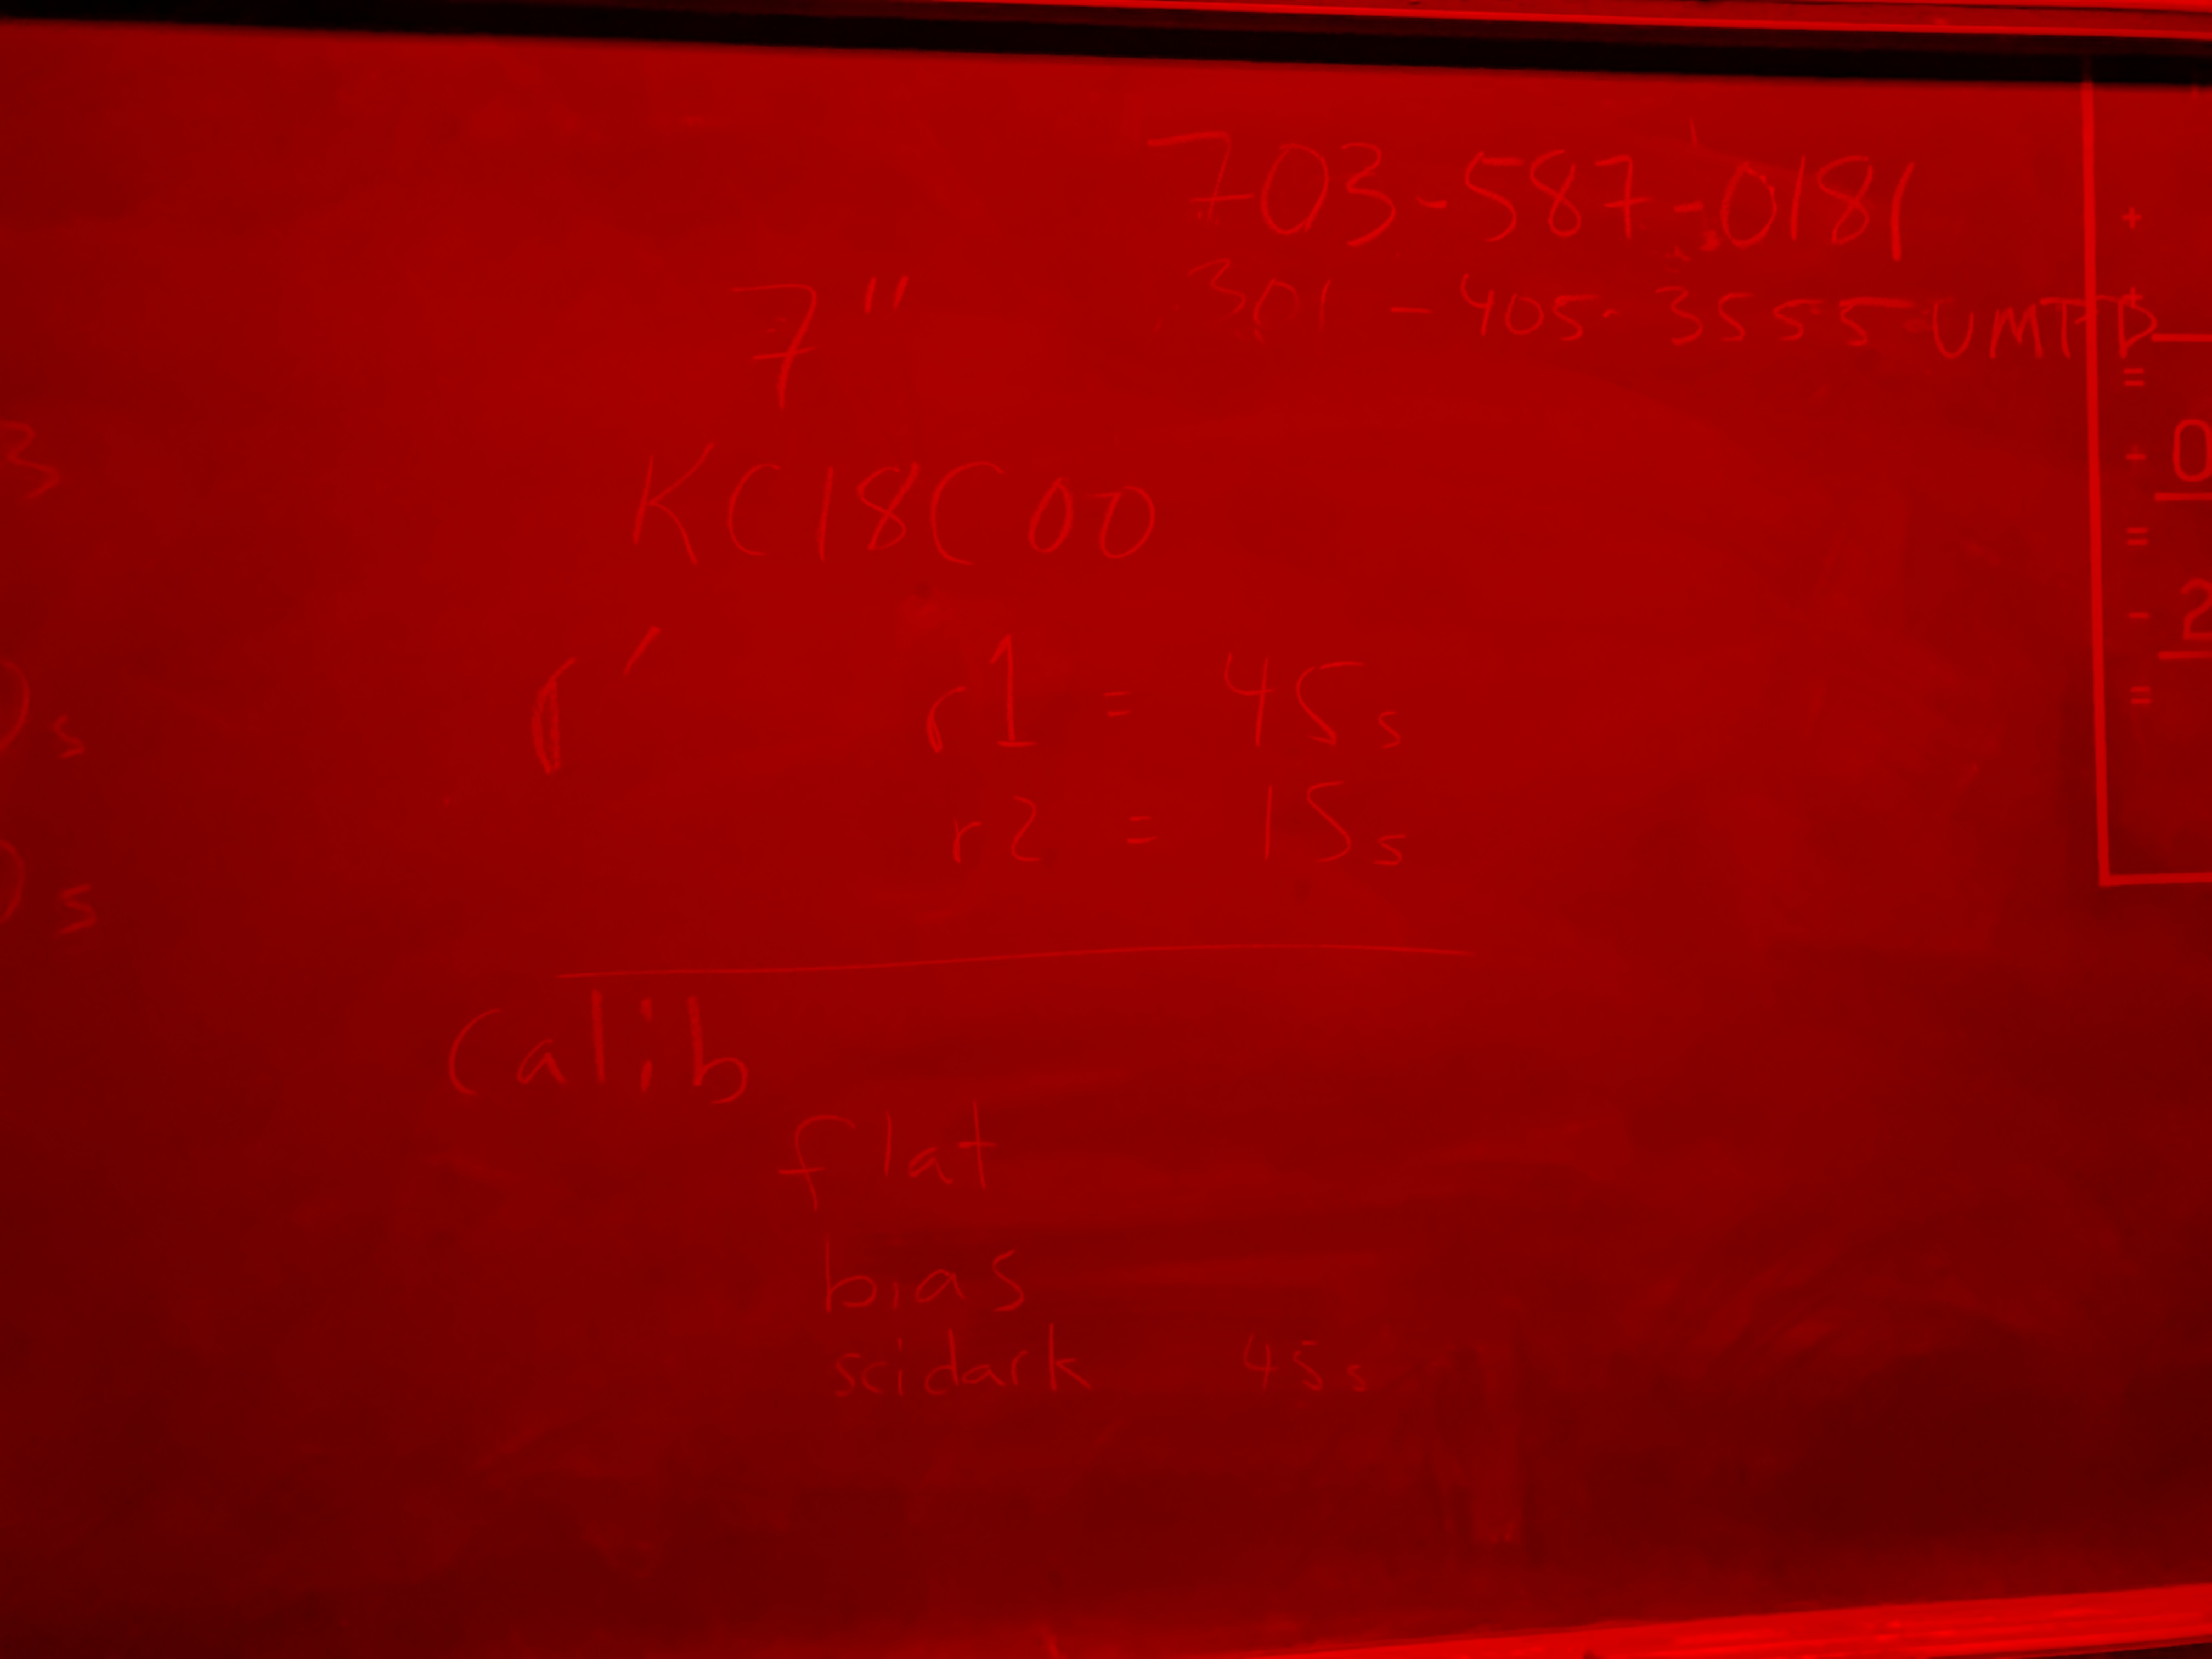 703-587-0181
301-405-3555-UMPD
7"
KC18C00
3
r'
r1 = 45s
s
r2 = 15s
s
Calib
flat
bias
scidark 45s
+
+
=
- 0
=
- 2
=